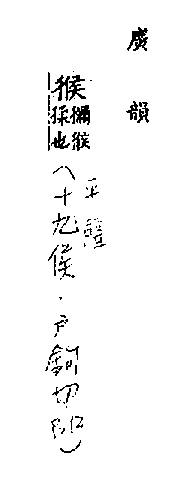 廣韻
猴 獼猴
猱也
平聲
(十九侯·戶鉤切)